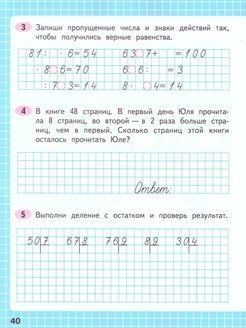 3 Запиши пропущенные числа и знаки действий так,
чтобы получились верные равенства.
81: · 6=54 63 7+ =100
· 8 6=70 6 6: =3
:7 3=14 8· 4=14
4 В книге 48 страниц. В первый день Юля прочита-
ла 8 страниц, во второй — в 2 раза больше стра-
ниц, чем в первый. Сколько страниц этой книги
осталось прочитать Юле?
Ответ:
5 Выполни деление с остатком и проверь результат.
50 7 67 8 76 9 8 9 30 4
40